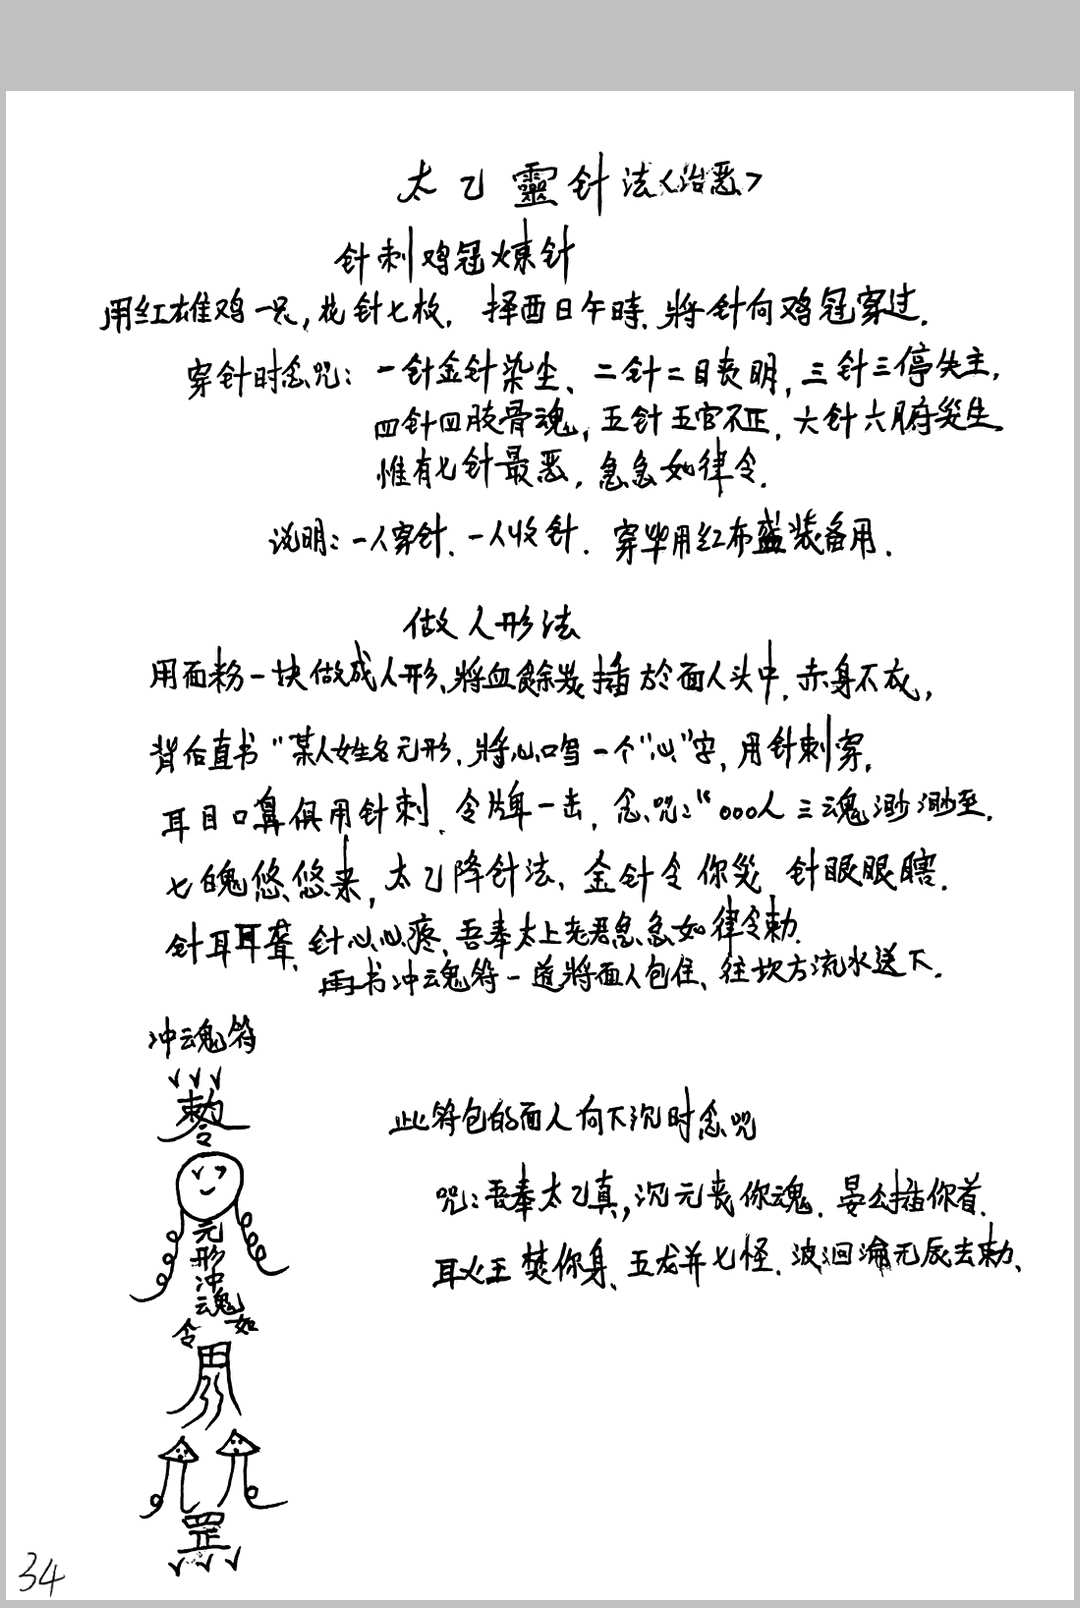 太乙靈针法<治恶>
针刺鸡冠炼针
用红雄鸡一只，花针七枚. 择酉日午時、將针向鸡冠穿过.
穿针时念咒：一针金针染尘、二针二目丧明，三针三停失主，
四针四肢骨魂，五针五官不正，六针六腑災生
惟有七针最恶，急急如律令.
说明：一人穿针、一人收针. 穿毕用红布盛装备用.
做人形法
用面粉一块做成人形、將血餘炭插於面人头中，赤身不衣，
背后直书“某人姓名元形，將心口写一个“心”字，用针刺穿，
耳目口鼻俱用针刺、令牌一击，念咒：“000人三魂渺渺至.
七魄悠悠来，太乙降针法、金针令你災，针眼眼瞎.
针耳耳聋、针心心疼、吾奉太上老君急急如律令勅.
再书冲云魂符一道將面人包住、往坎方流水送下.
冲云魂符
勅令
此符包的面人向下沉时念咒
咒：吾奉太乙真，沉元丧你魂. 晏刽插你首.
元形冲云魂
耳火王焚你身、五龙并七怪. 波洄淪无辰去勅、
令如
罡
34